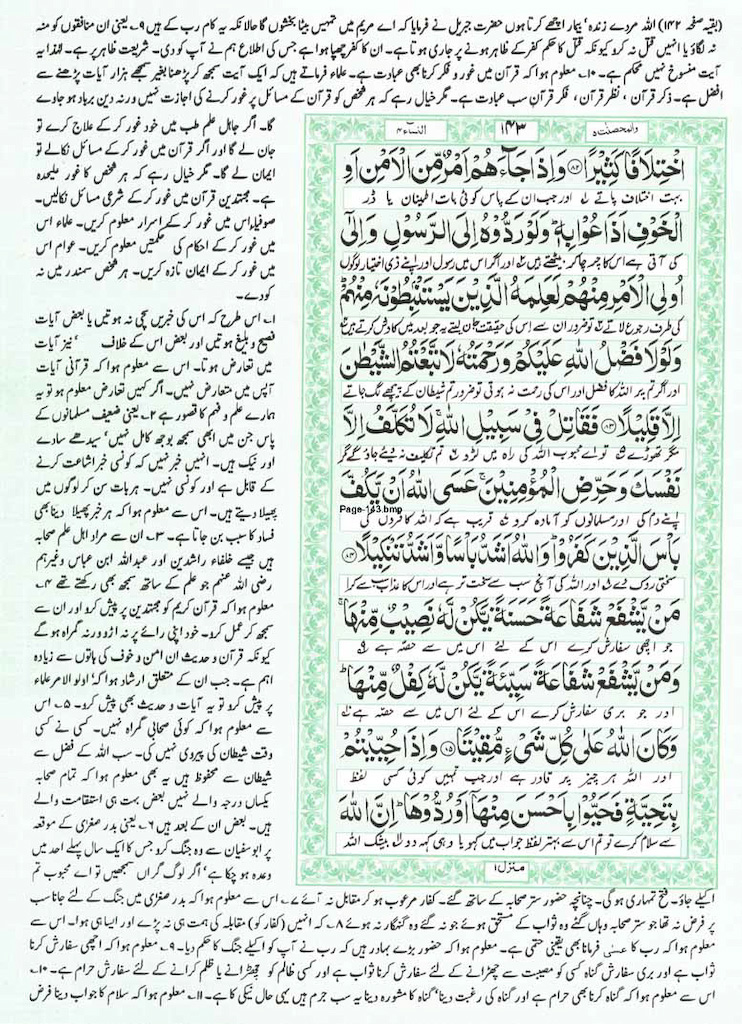 (بقیہ صفحہ ۱۴۲) اللہ مردے زندہ' بیمار اچھے کرتا ہوں حضرت جبریل نے فرمایا کہ اے مریم میں تمہیں بیٹا بخشوں گا حالانکہ یہ کام رب کے ہیں ۹۔ یعنی ان منافقوں کو منہ
نہ لگاؤ یا انہیں قتل نہ کرو کیونکہ قتل کا حکم کفر کے ظاہر ہونے پر جاری ہوتا ہے۔ ان کا کفر چھپا ہوا ہے جس کی اطلاع ہم نے آپ کو دی۔ شریعت ظاہر پر ہے۔ لہٰذا یہ
آیت منسوخ نہیں محکم ہے۔ ۱۰۔ معلوم ہوا کہ قرآن میں غور و فکر کرنا بھی عبادت ہے۔ علماء فرماتے ہیں کہ ایک آیت سمجھ کر پڑھنا بغیر سمجھے ہزار آیات پڑھنے سے
افضل ہے۔ ذکر قرآن، نظر قرآن، فکر قرآن سب عبادت ہے۔ مگر خیال رہے کہ ہر شخص کو قرآن کے مسائل پر غور کرنے کی اجازت نہیں ورنہ دین برباد ہو جاوے
گا۔ اگر جاہل علم طب میں خود غور کر کے علاج کرے تو
جان لے گا اور اگر قرآن میں غور کر کے مسائل نکالے تو
ایمان لے گا۔ مگر خیال رہے کہ ہر شخص کا غور علیحدہ
ہے۔ مجتہدین قرآن میں غور کر کے شرعی مسائل نکالیں۔
صوفیاء اس میں غور کر کے اسرار معلوم کریں۔ علماء اس
میں غور کر کے احکام کی حکمتیں معلوم کریں۔ عوام اس
میں غور کر کے ایمان تازہ کریں۔ ہر شخص سمندر میں نہ
کودے۔
۱۔ اس طرح کہ اس کی خبریں سچی نہ ہوتیں یا بعض آیات
فصیح و بلیغ ہوتیں اور بعض اس کے خلاف ' نیز آیات
میں تعارض ہوتا۔ اس سے معلوم ہوا کہ قرآنی آیات
آپس میں متعارض نہیں۔ اگر کہیں تعارض معلوم ہو تو یہ
ہمارے علم و فہم کا قصور ہے ۲۔ یعنی ضعیف مسلمانوں کے
پاس جن میں ابھی سمجھ بوجھ کامل نہیں' سیدھے سادے
اور نیک ہیں۔ انہیں خبر نہیں کہ کونسی خبر اشاعت کرنے
کے قابل ہے اور کونسی نہیں۔ ہر بات سن کر لوگوں میں
پھیلا دیتے ہیں۔ اس سے معلوم ہوا کہ ہر خبر پھیلا دینا بھی
فساد کا سبب بن جاتا ہے۔ ۳۔ ان سے مراد اہل علم صحابہ
ہیں جیسے خلفاء راشدین اور عبداللہ ابن عباس وغیرہم
رضی اللہ عنہم جو علم کے ساتھ سمجھ بھی رکھتے تھے ۴۔
معلوم ہوا کہ قرآن کریم کو مجتہدین پر پیش کرو اور ان سے
سمجھ کر عمل کرو۔ خود اپنی رائے پر نہ اڑو ورنہ گمراہ ہو گے
کیونکہ قرآن و حدیث ان امن و خوف کی باتوں سے زیادہ
اہم ہے۔ جب ان کے متعلق ارشاد ہوا کہ اولوالامر علماء
پر پیش کرو تو یہ آیات و حدیث بھی پیش کرو۔ ۵۔ اس
سے معلوم ہوا کہ کوئی صحابی گمراہ نہیں۔ کسی نے کسی
وقت شیطان کی پیروی نہیں کی۔ سب اللہ کے فضل سے
شیطان سے محفوظ ہیں یہ بھی معلوم ہوا کہ تمام صحابہ
یکساں درجہ والے نہیں بعض بہت ہی استقامت والے
ہیں۔ بعض ان کے بعد ہیں ۶۔ یعنی بدر صغریٰ کے موقعہ
پر ابوسفیان سے وہ جنگ کرو جس کا ایک سال پہلے احد میں
وعدہ ہو چکا ہے' اگر لوگ گراں سمجھیں تو اے محبوب تم
والمحصنت ۵
۱۴۳
النساء ۴
اخْتِلَافًا كَثِيْرًا ﴿۸۲﴾ وَاِذَا جَآءَهُمْ اَمْرٌ مِّنَ الْاَمْنِ اَوِ
بہت اختلاف پاتے ۱ اور جب ان کے پاس کوئی بات اطمینان یا ڈر
الْخَوْفِ اَذَاعُوْا بِهٖ ؕ وَلَوْ رَدُّوْهُ اِلَى الرَّسُوْلِ وَاِلٰٓى
کی آتی ہے اس کا چرچا کر بیٹھتے ہیں ۲ اور اگر اس میں رسول اور اپنے ذی اختیار لوگوں
اُولِى الْاَمْرِ مِنْهُمْ لَعَلِمَهُ الَّذِيْنَ يَسْتَنْۢبِطُوْنَهٗ مِنْهُمْ ؕ
کی طرف رجوع لاتے ۳ تو ضرور ان سے اس کی حقیقت جان لیتے یہ جو بعد میں کاوش کرتے ہیں ۴
وَلَوْلَا فَضْلُ اللّٰهِ عَلَيْكُمْ وَرَحْمَتُهٗ لَاتَّبَعْتُمُ الشَّيْطٰنَ
اور اگر تم پر اللہ کا فضل اور اس کی رحمت نہ ہوتی تو ضرور تم شیطان کے پیچھے لگ جاتے
اِلَّا قَلِيْلًا ﴿۸۳﴾ فَقَاتِلْ فِيْ سَبِيْلِ اللّٰهِ ۚ لَا تُكَلَّفُ اِلَّا
مگر تھوڑے ۵ تو اے محبوب اللہ کی راہ میں لڑو تم تکلیف نہ دیئے جاؤ گے مگر
نَفْسَكَ وَحَرِّضِ الْمُؤْمِنِيْنَ ۚ عَسَى اللّٰهُ اَنْ يَّكُفَّ
Page-143.bmp
اپنے دم کی اور مسلمانوں کو آمادہ کرو قریب ہے کہ اللہ کافروں کی
بَاْسَ الَّذِيْنَ كَفَرُوْا ؕ وَاللّٰهُ اَشَدُّ بَاْسًا وَّاَشَدُّ تَنْكِيْلًا ﴿۸۴﴾
سختی روک دے اور اللہ کی آنچ سب سے سخت تر ہے اور اس کا عذاب سب سے کڑا
مَنْ يَّشْفَعْ شَفَاعَةً حَسَنَةً يَّكُنْ لَّهٗ نَصِيْبٌ مِّنْهَا ۚ
جو اچھی سفارش کرے اس کے لئے اس میں سے حصہ ہے ۹
وَمَنْ يَّشْفَعْ شَفَاعَةً سَيِّئَةً يَّكُنْ لَّهٗ كِفْلٌ مِّنْهَا ؕ
اور جو بری سفارش کرے اس کے لئے اس میں سے حصہ ہے ۱۰
وَكَانَ اللّٰهُ عَلٰى كُلِّ شَىْءٍ مُّقِيْتًا ﴿۸۵﴾ وَاِذَا حُيِّيْتُمْ
اور اللہ ہر چیز پر قادر ہے اور جب تمہیں کوئی کسی لفظ
بِتَحِيَّةٍ فَحَيُّوْا بِاَحْسَنَ مِنْهَآ اَوْ رُدُّوْهَا ؕ اِنَّ اللّٰهَ
سے سلام کرے تو تم اس سے بہتر لفظ جواب میں کہو یا وہی کہہ دو ۱۱ بیشک اللہ
منزل ۱
اکیلے جاؤ۔ فتح تمہاری ہو گی۔ چنانچہ حضور ستر صحابہ کے ساتھ گئے۔ کفار مرعوب ہو کر مقابل نہ آئے ۷۔ اس سے معلوم ہوا کہ بدر صغریٰ میں جنگ کے لئے جانا سب
پر فرض نہ تھا جو ستر صحابہ وہاں گئے وہ ثواب کے مستحق ہوئے جو نہ گئے وہ گنہگار نہ ہوئے ۸۔ کہ انہیں (کفار کو) مقابلہ کی ہمت ہی نہ پڑے اور ایسا ہی ہوا۔ اس سے
معلوم ہوا کہ رب کا عسیٰ فرمانا بھی یقینی حتمی ہے۔ معلوم ہوا کہ حضور بڑے بہادر ہیں کہ رب نے آپ کو اکیلے جنگ کا حکم دیا۔ ۹۔ معلوم ہوا کہ اچھی سفارش کرنا
ثواب ہے اور بری سفارش گناہ کسی کو مصیبت سے چھڑانے کے لئے سفارش کرنا ثواب ہے اور کسی ظالم کو چھڑانے یا ظلم کرانے کے لئے سفارش حرام ہے۔ ۱۰۔
اس سے معلوم ہوا کہ گناہ کرنا بھی حرام ہے اور گناہ کی رغبت دینا' گناہ کا مشورہ دینا یہ سب جرم ہیں یہی حال نیکی کا ہے۔ ۱۱۔ معلوم ہوا کہ سلام کا جواب دینا فرض